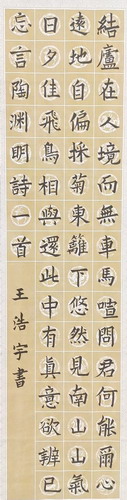 結廬在人境而無車馬喧問君何能爾心
遠地自偏採菊東籬下悠然見南山山氣
日夕佳飛鳥相與還此中有眞意欲辨已
忘言陶淵明詩一首 王浩宇書